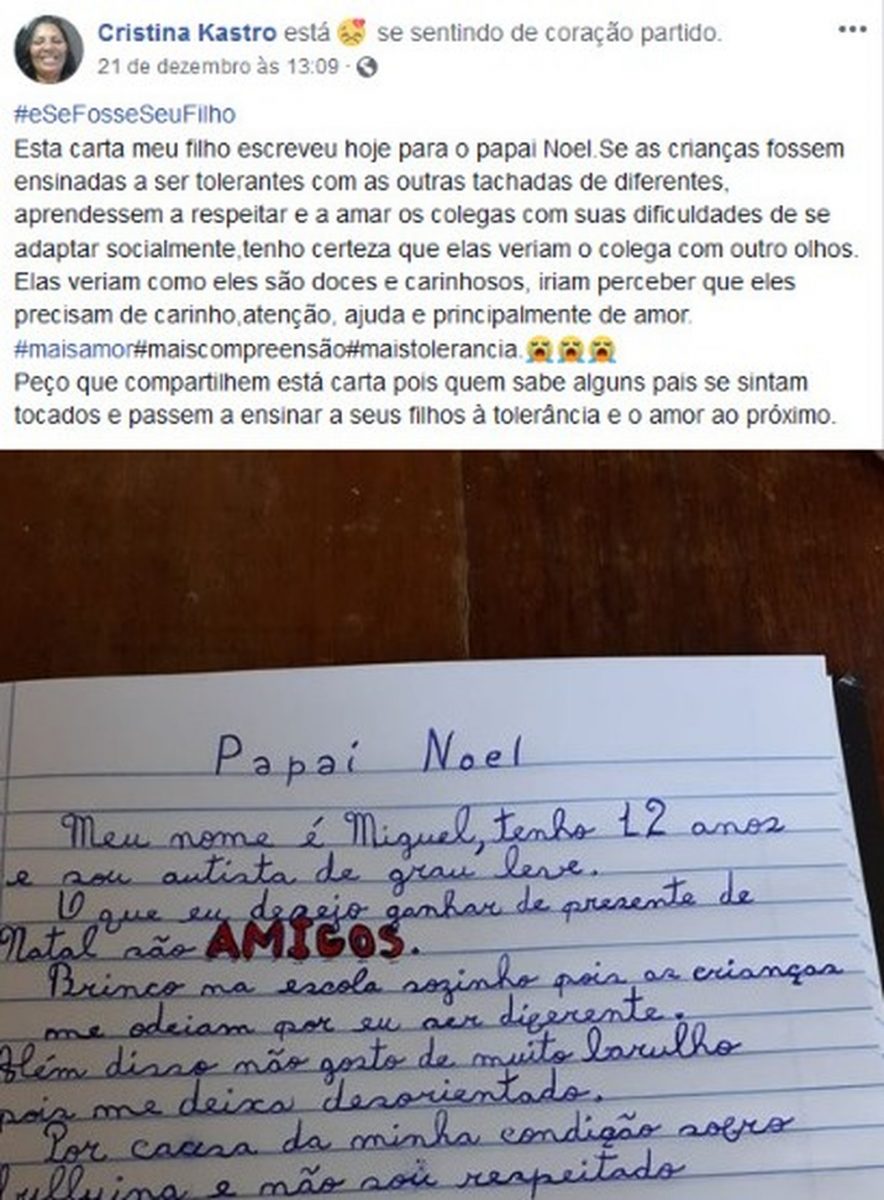 Cristina Kastro está se sentindo de coração partido.
21 de dezembro às 13:09 ·
#eSeFosseSeuFilho
Esta carta meu filho escreveu hoje para o papai Noel.Se as crianças fossem
ensinadas a ser tolerantes com as outras tachadas de diferentes,
aprendessem a respeitar e a amar os colegas com suas dificuldades de se
adaptar socialmente,tenho certeza que elas veriam o colega com outro olhos.
Elas veriam como eles são doces e carinhosos, iriam perceber que eles
precisam de carinho,atenção, ajuda e principalmente de amor.
#maisamor#maiscompreensão#maistolerancia.😭😭😭
Peço que compartilhem está carta pois quem sabe alguns pais se sintam
tocados e passem a ensinar a seus filhos à tolerância e o amor ao próximo.
Papai Noel
Meu nome é Miguel, tenho 12 anos
e sou autista de grau leve.
O que eu desejo ganhar de presente de
Natal são AMIGOS.
Brinco na escola sozinho pois as crianças
me odeiam por eu ser diferente.
Além disso não gosto de muito barulho
pois me deixa desorientado.
Por causa da minha condição sofro
bullying e não sou respeitado